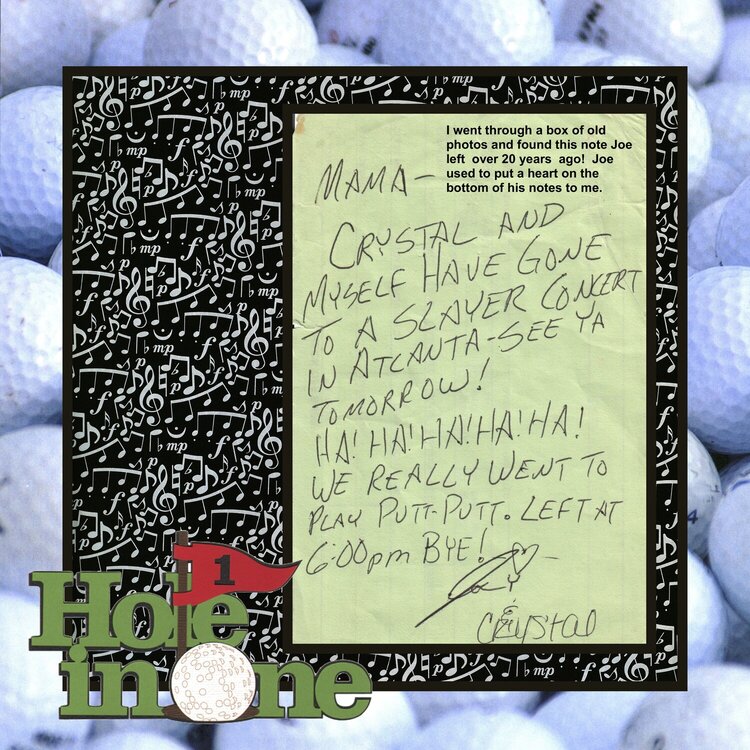 I went through a box of old
photos and found this note Joe
left over 20 years ago! Joe
used to put a heart on the
bottom of his notes to me.
MAMA-
CRYSTAL AND
MYSELF HAVE GONE
TO A SLAYER CONCERT
IN ATLANTA-SEE YA
TOMORROW!
HA! HA! HA! HA! HA!
WE REALLY WENT TO
PLAY PUTT-PUTT. LEFT AT
6:00pm BYE!
&
Crystal
1
Hole
in one